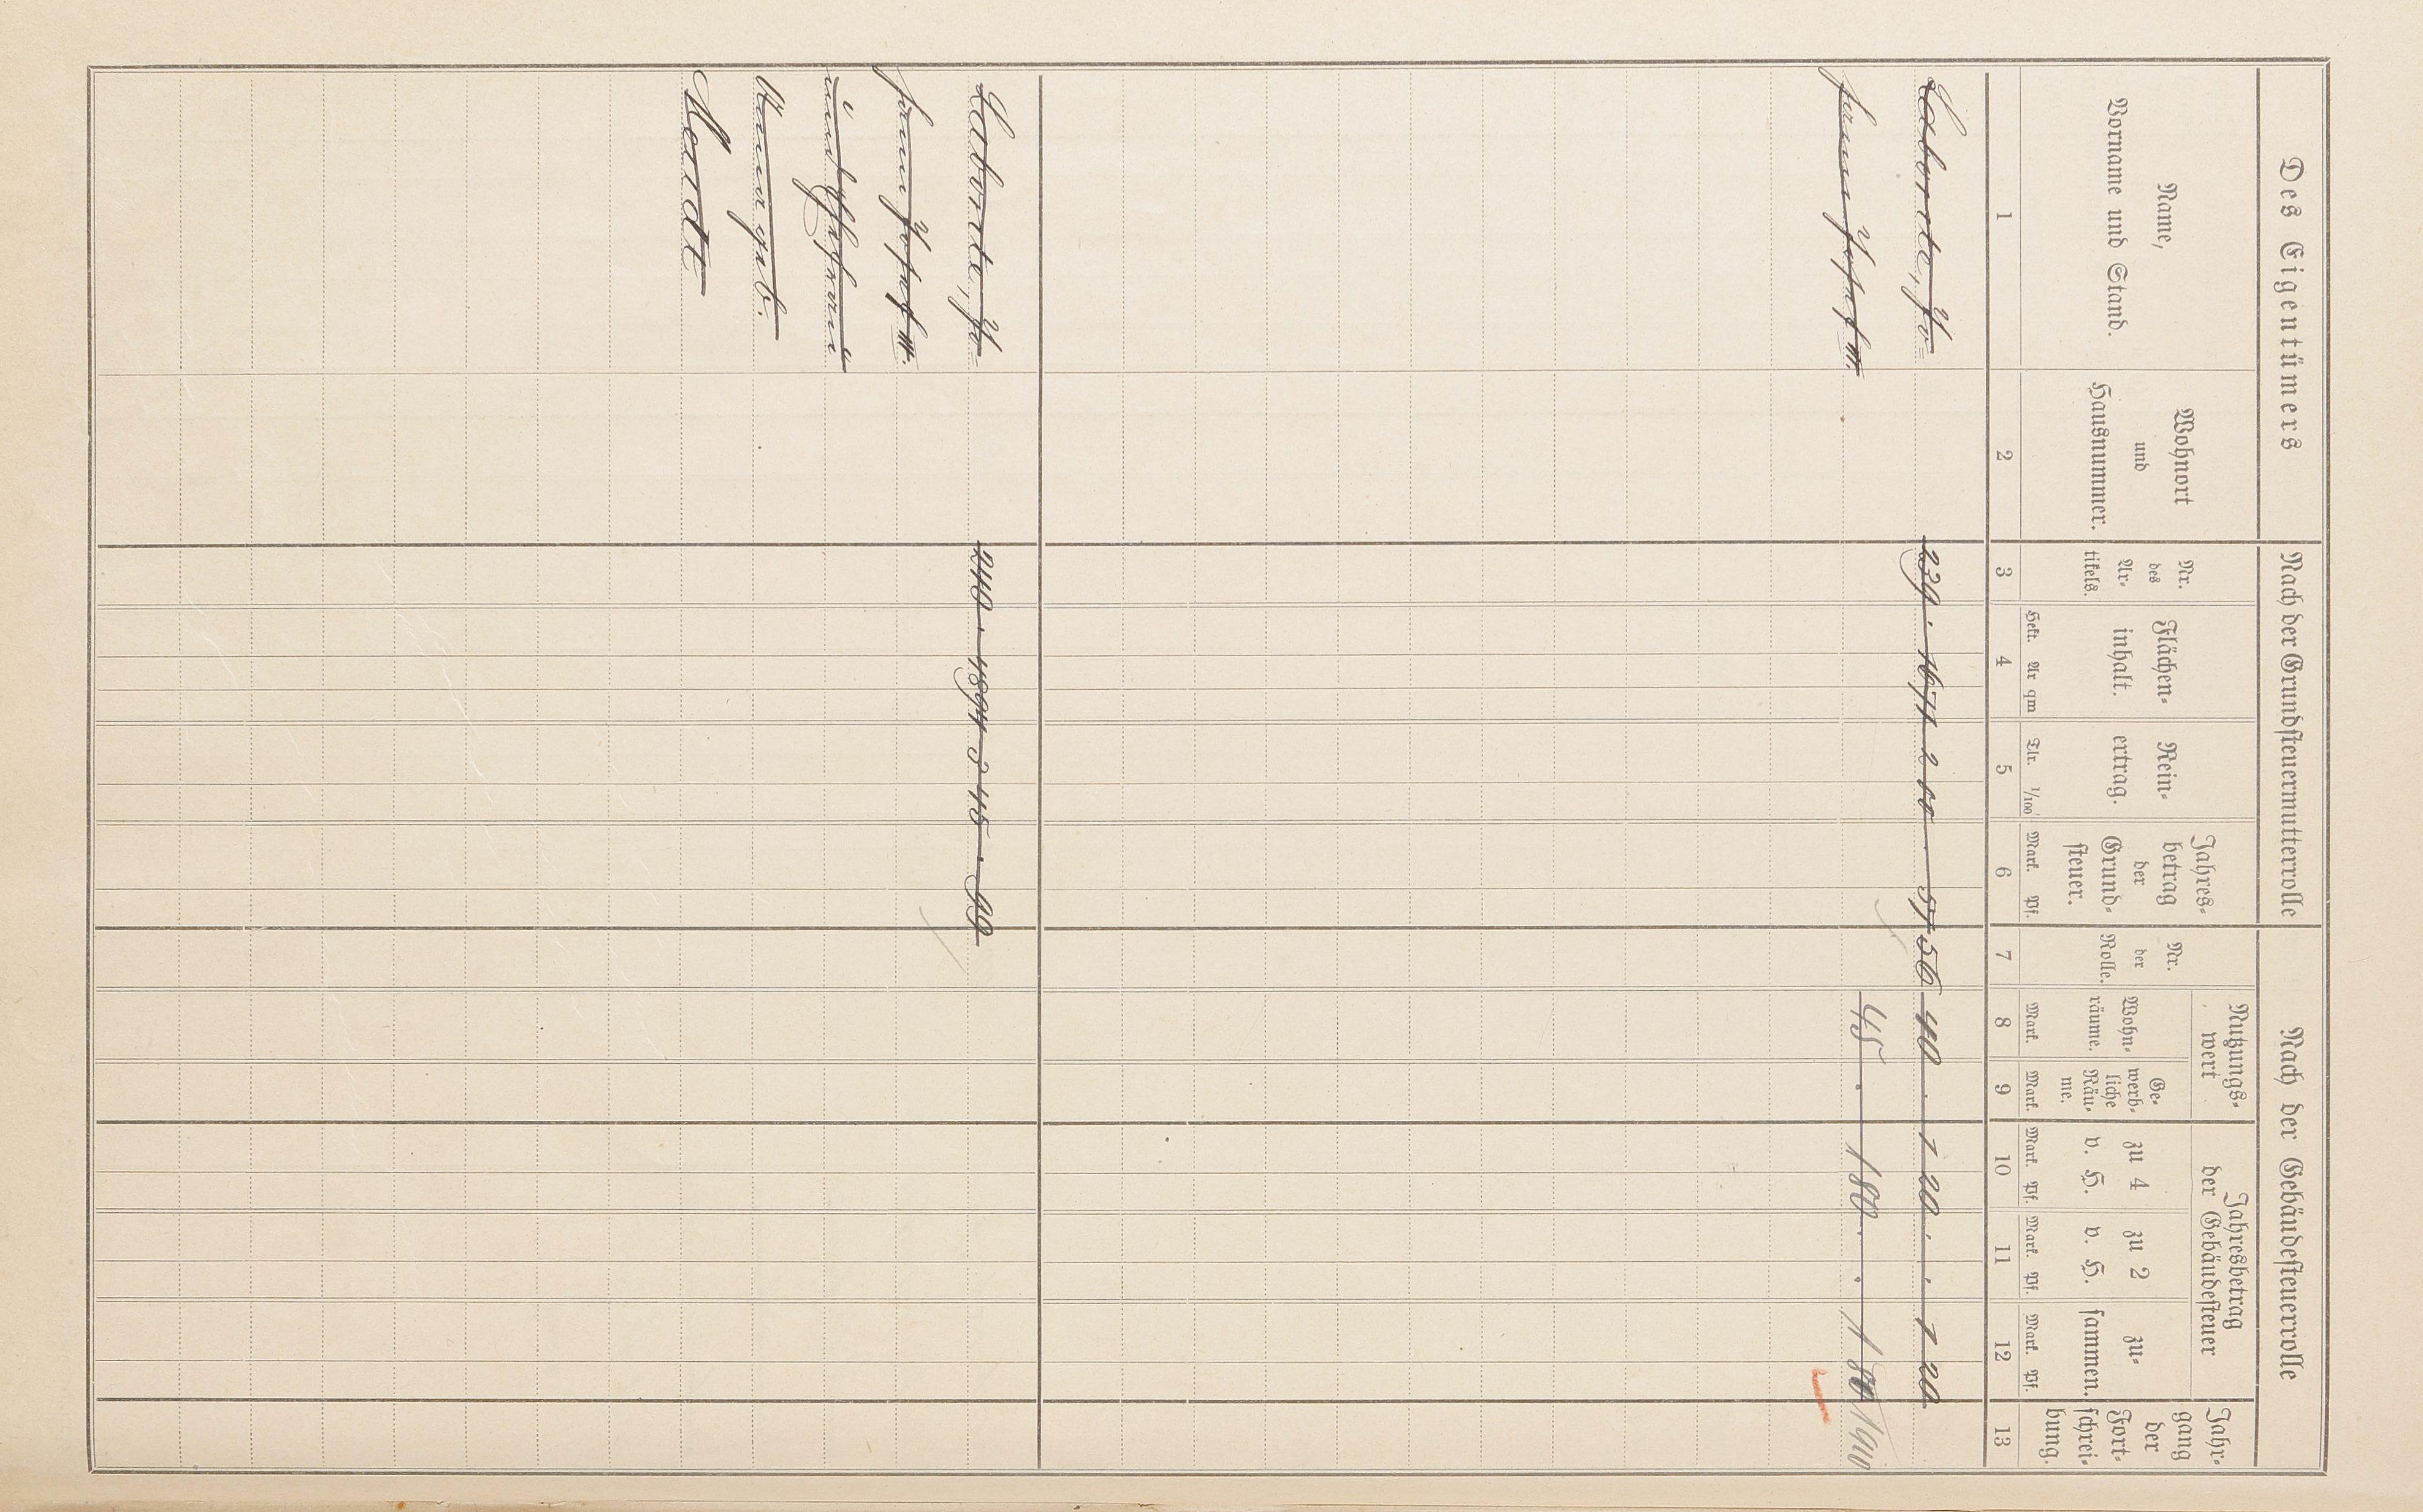 Des Eigentümers
Nach der Grundsteuermutterrolle
Nach der Gebäudesteuerrolle
Name,
Vorname und Stand.
Wohnort
und
Hausnummer.
Nr.
des
Ar-
tikels.
Flächen-
inhalt.
Rein-
ertrag.
Jahres-
betrag
der
Grund-
steuer.
Nr.
der
Rolle.
Nutzungs-
wert
Wohn-
räume.
Ge-
werb-
liche
Räu-
me.
Jahresbetrag
der Gebäudesteuer
zu 4
v. H.
zu 2
v. H.
zu-
sammen.
Jahr-
gang
der
Fort-
schrei-
bung.
Hekt. Ar qm Tlr. 1/100 Mark. Pf. Mark. Mark. Mark. Pf. Mark. Pf. Mark. Pf.
1 2 3 4 5 6 7 8 9 10 11 12 13
Laborde, Jo= 239 . 16 71 2 . 57 56 40 . 1 20 . . 1 20
hann Josef III. 45 . 1 80 . . 1 80 1910
Laborde, Jo= 240 . 48 94 3 45 . 99
hann Josef III.
und Ehefrau
Anna geb.